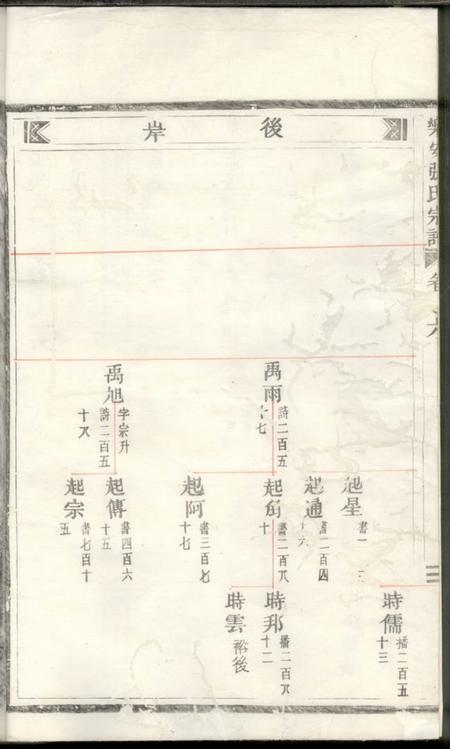 樂安張氏宗譜
卷
後岸
禹雨
詩二百五
十七
禹旭
字宗升
詩二百五
十八
起星
起通
起
起阿
書三百七
十七
起傳
書四百六
十五
起宗
書七百十
五
時儒
播二百五
十三
時邦
播二百八
十二
時雲
裕後
三